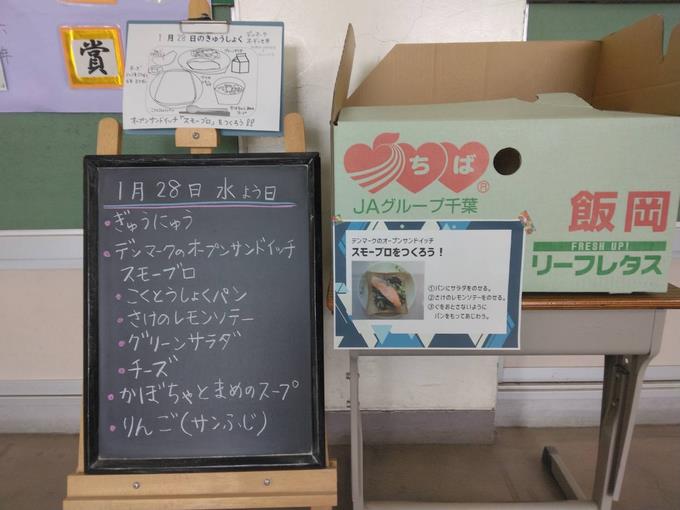 賞
1月28日のきゅうしょく
オープンサンドイッチ「スモーブロ」をつくろう!!
1月28日 水よう日
・ぎゅうにゅう
・デンマークのオープンサンドイッチ
スモーブロ
・こくとうしょくパン
・さけのレモンソテー
・グリーンサラダ
・チーズ
・かぼちゃとまめのスープ
・りんご(サンふじ)
ちば
®
JAグループ千葉
飯岡
FRESH UP!
リーフレタス
デンマークのオープンサンドイッチ
スモーブロをつくろう!
①パンにサラダをのせる。
②さけのレモンソテーをのせる。
③ぐをおとさないように
パンをもってあじわう。